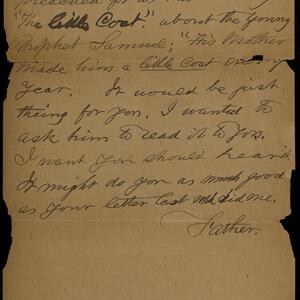 preached for us
"The little Coat." about the young
Prophet Samuel; "His Mother
made him a little Coat every
Year. It would be just
theing for you. I wanted to
ask him to read it to you.
I want you should hear it.
It might do you as much good
as your letter last did me.
Father.